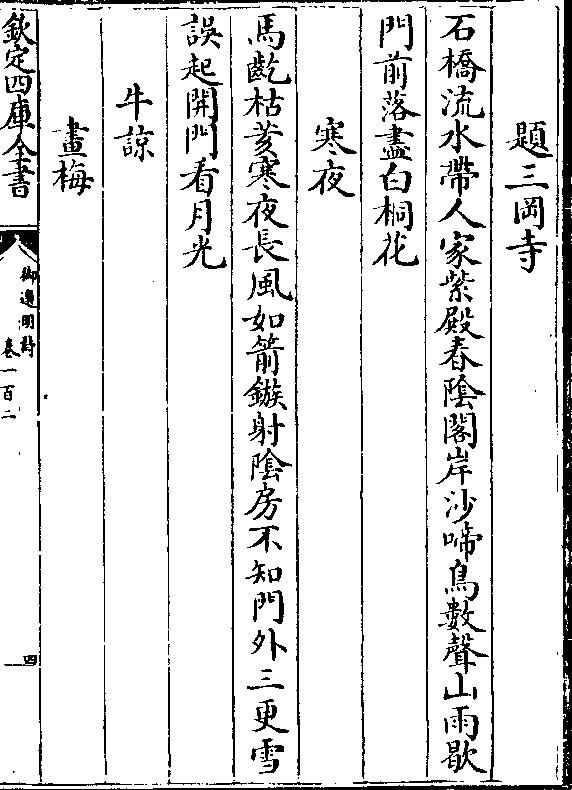 題三岡寺
石橋流水帶人家紫殿春陰閣岸沙啼鳥數聲山雨歇
門前落盡白桐花
寒夜
馬齕枯萁寒夜長風如箭鏃射陰房不知門外三更雪
誤起開門看月光
牛諒
畫梅
欽定四庫全書
御選明詩
卷一百二
四